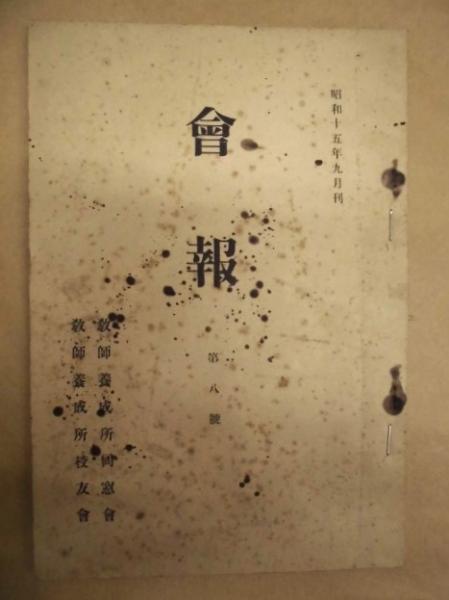 昭和十五年九月刊
會報
第八號
教師養成所同窓會
教師養成所校友會